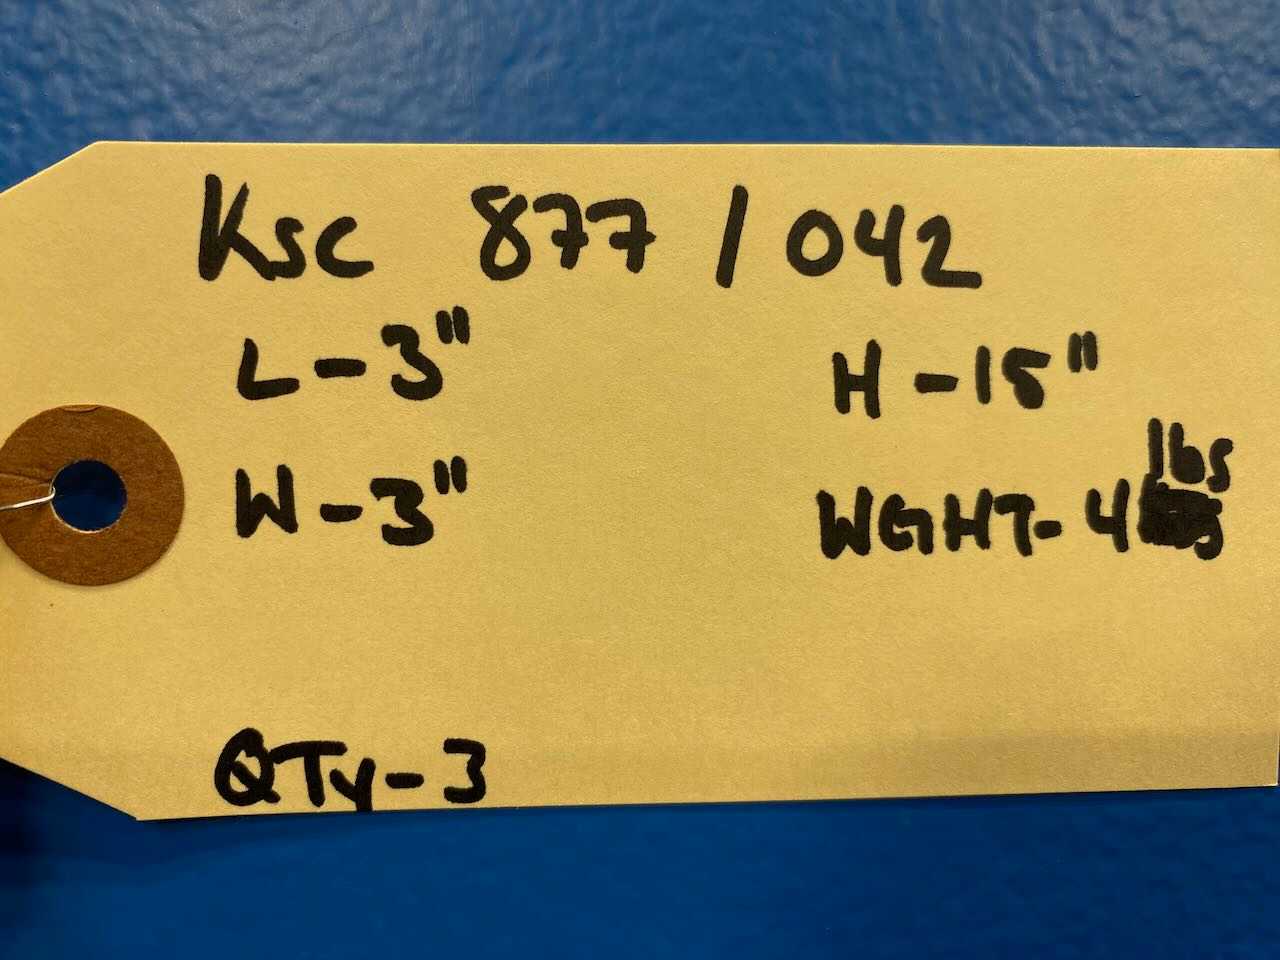 KSC 877 / 042
L-3" H-15"
W-3" WGHT-4 lbs
QTy-3